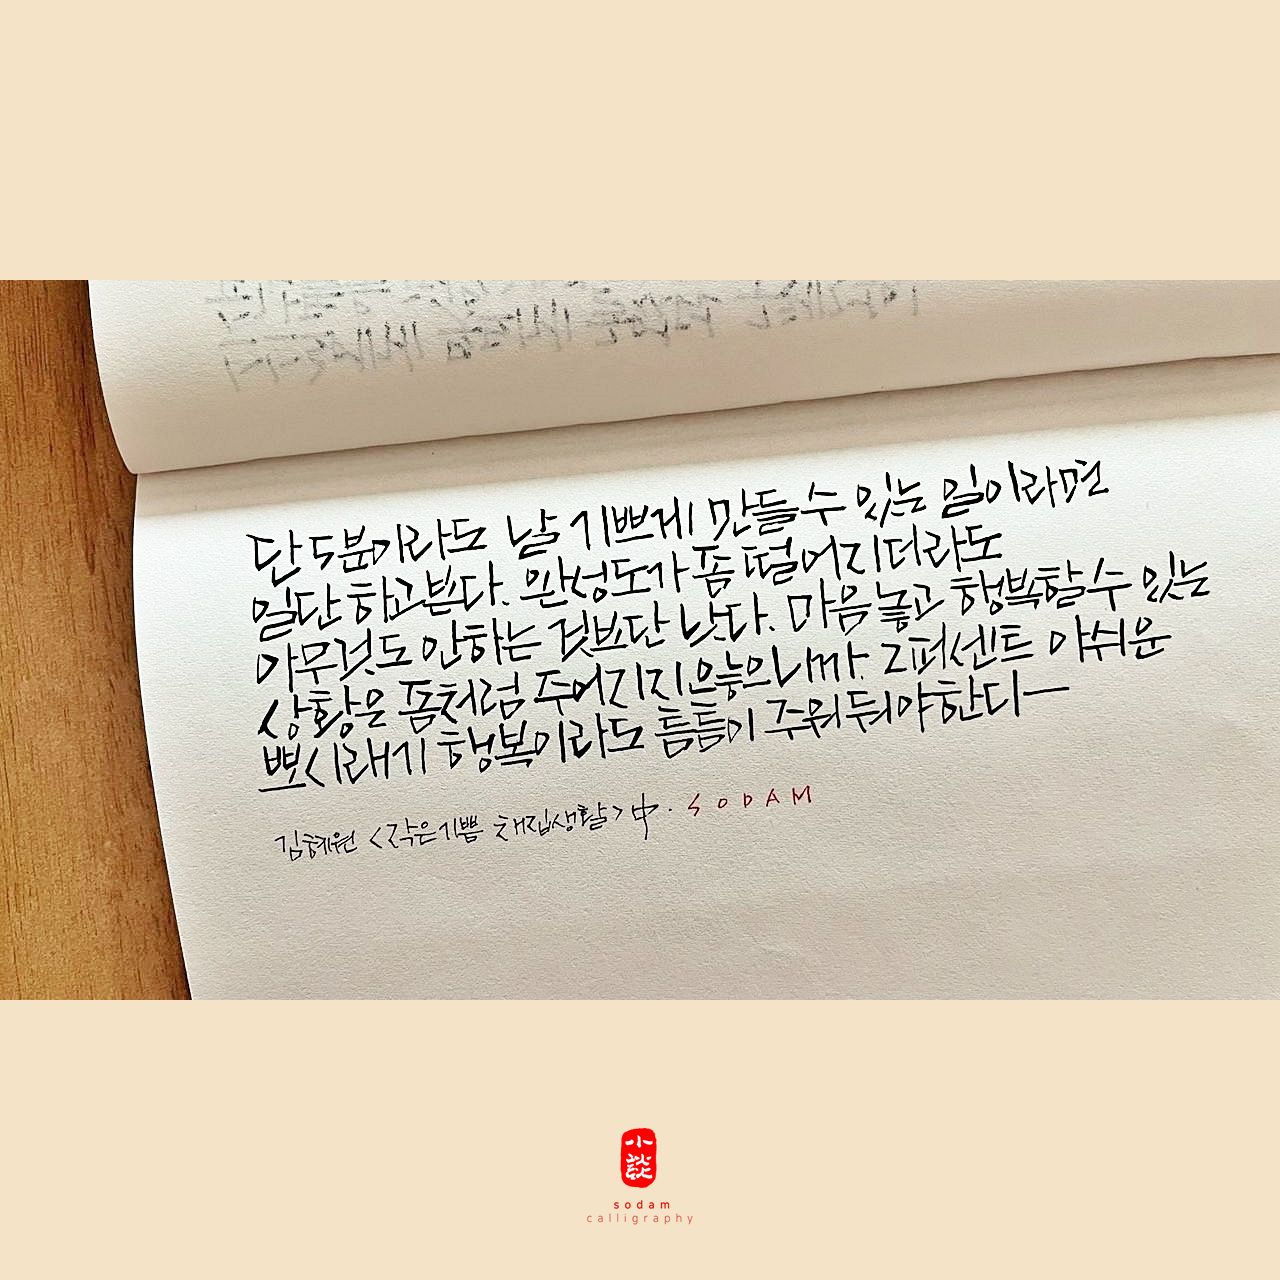 단 5분이라도 날 기쁘게 만들 수 있는 일이라면
일단 하고 본다. 완성도가 좀 떨어지더라도
아무것도 안하는 것보단 낫다. 마음 놓고 행복할 수 있는
상황은 좀처럼 주어지지 않으니까. 2퍼센트 아쉬운
뽀시래기 행복이라도 틈틈이 주워둬야 한다
김혜원 <작은 기쁨 채집생활> 中. SODAM
小談
sodam
calligraphy